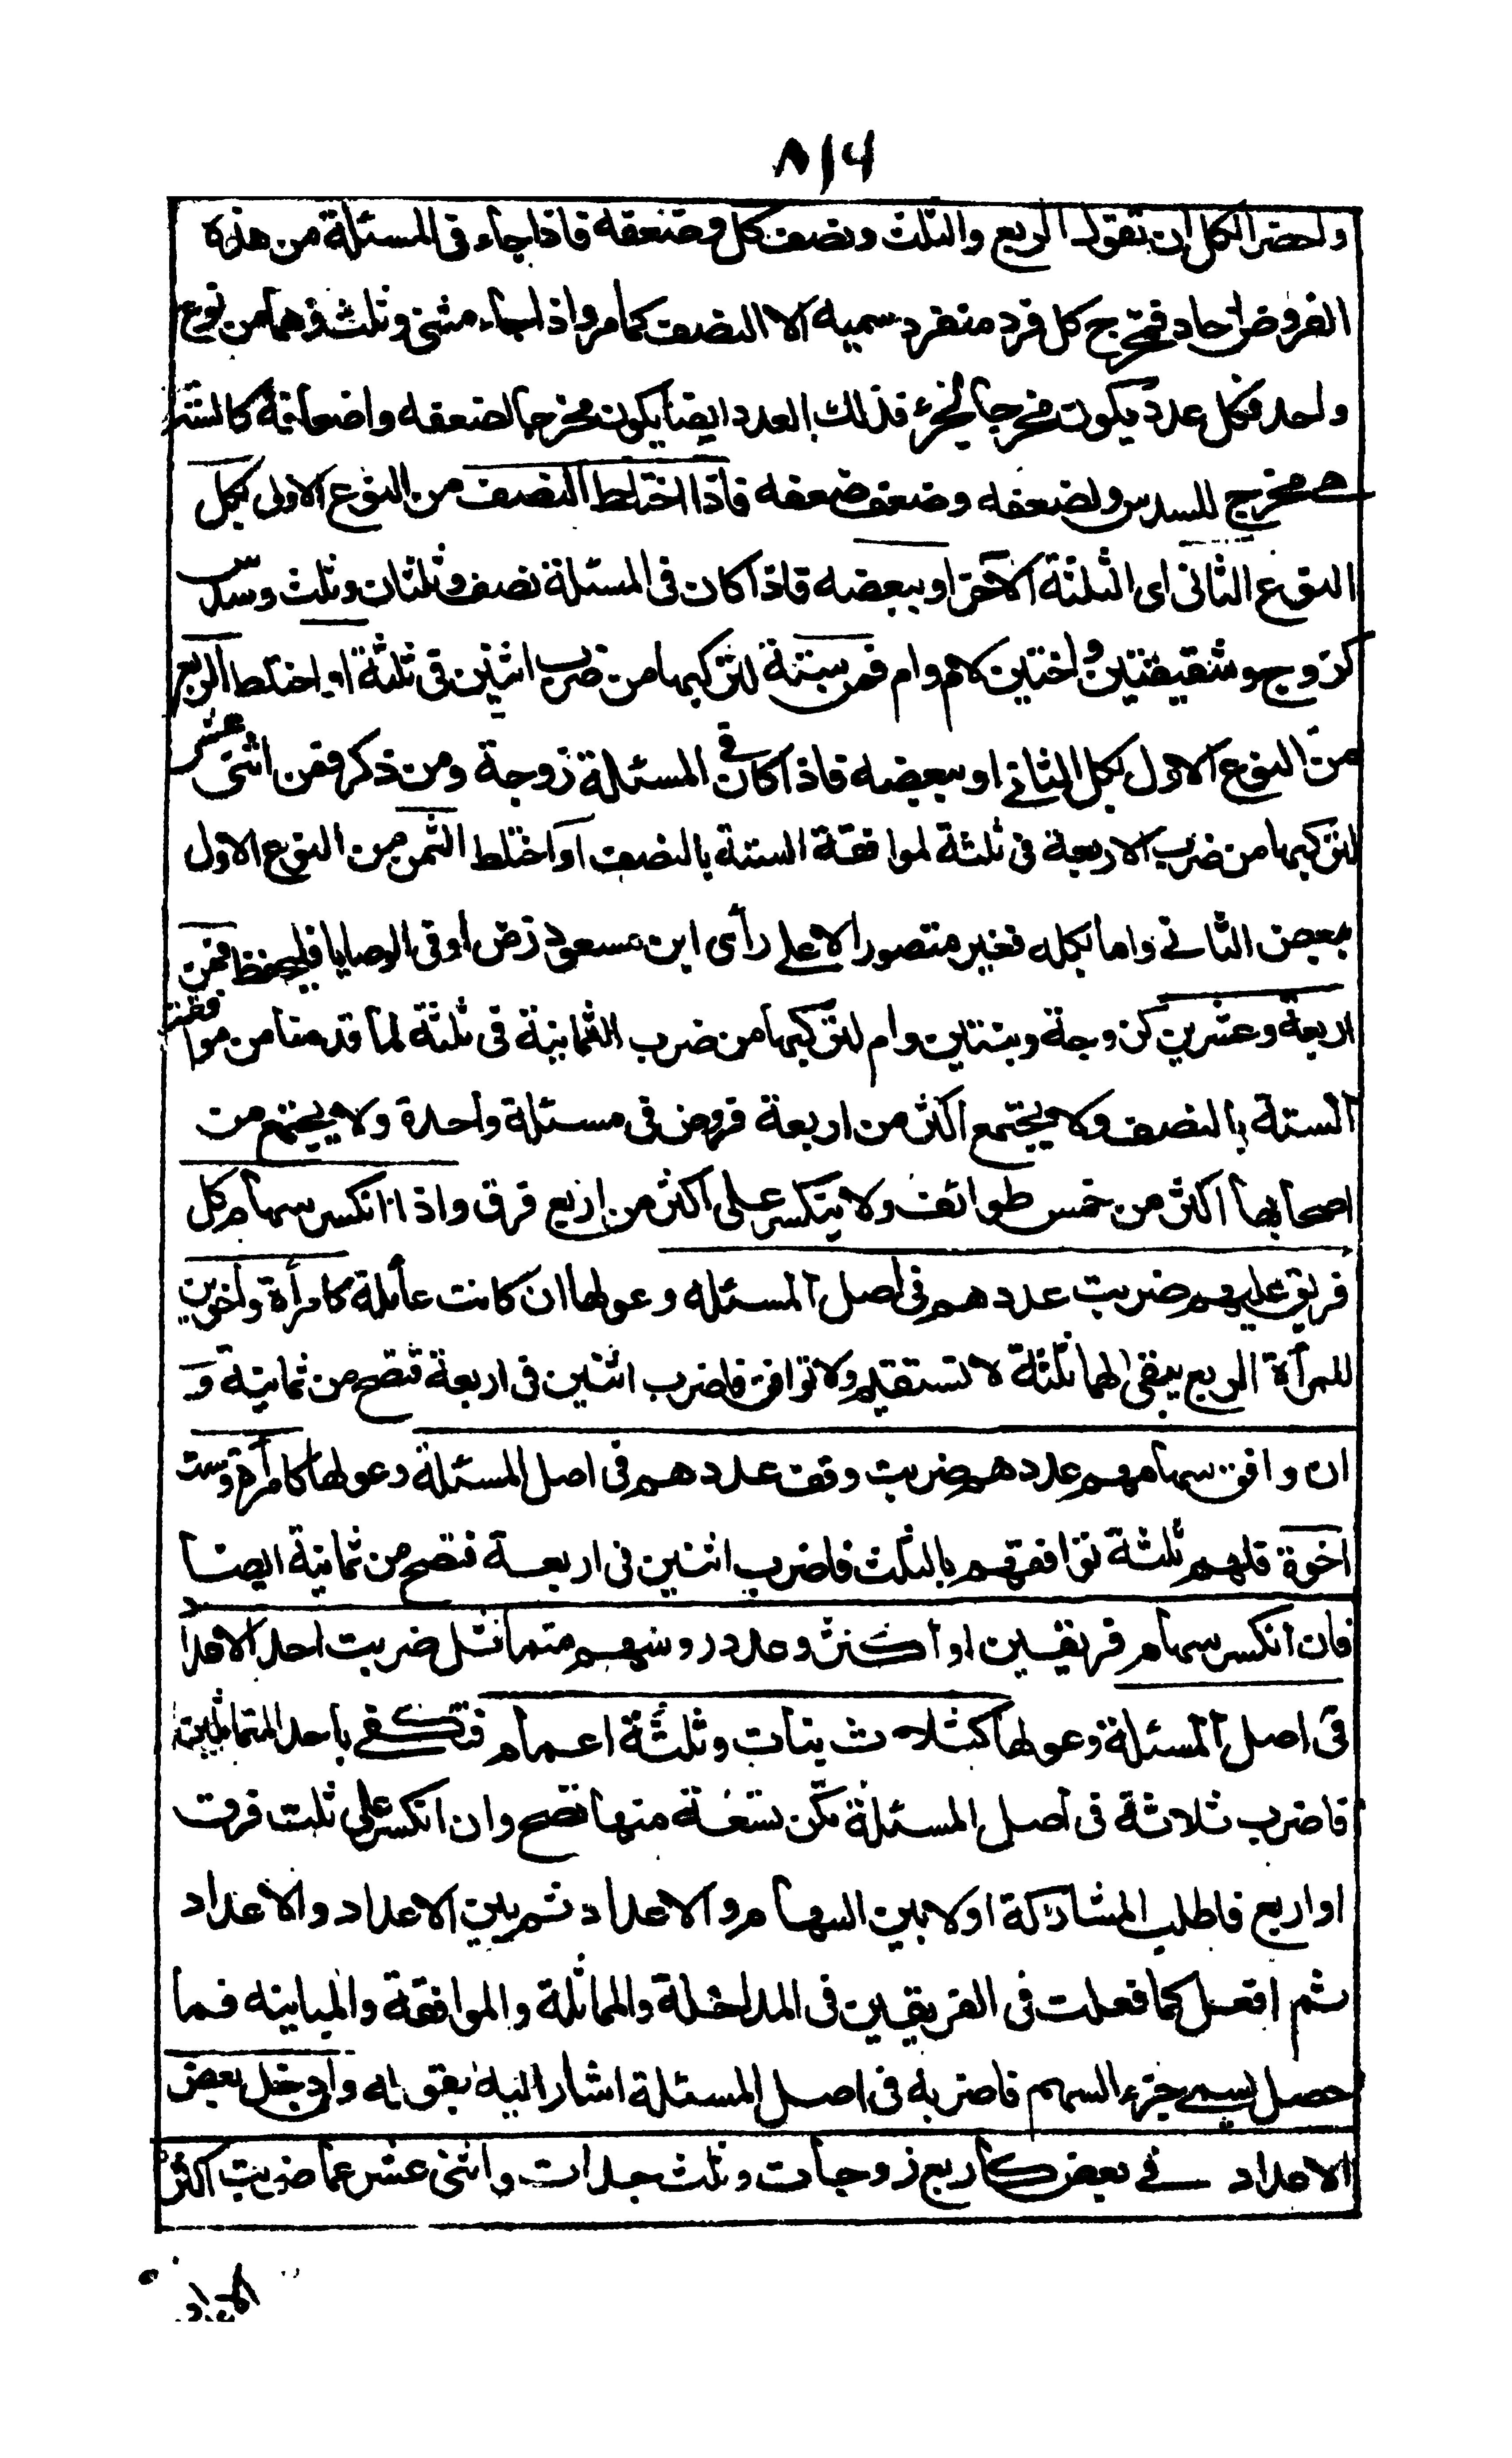 ٨١٤
واخصر الكل ان تقول الربع والثلث ونصف كل وضعفه فاذا جاء في المسئلة من هذه
الفروض احاد فمخرج كل فرد منفرد سميه الا النصف كما مر واذا جاء مثنى وثلث وهما من نوع
واحد فكل عدد يكون مخرجا لجزء فذلك العدد ايضا يكون مخرجا لضعفه واضعافه كالستة
هي مخرج للسدس ولضعفه وضعف ضعفه فاذا اختلط النصف من النوع الاولى بكل
النوع الثاني اى الثلثة الاخر او ببعضه فاذا كان في المسئلة نصف وثلثان وثلث وسدس
كزوج وشقيقتين واختين لام وام فمن ستة لتركبها من ضرب اثنين في ثلثة او اختلط الربع
من النوع الاول بكل الثاني او ببعضه فاذا كان في المسئلة زوجة ومن ذكر فمن اثنى عشر
لتركبها من ضرب الاربعة في ثلثة لموافقة الستة بالنصف او اختلط الثمن من النوع الاول
ببعض الثاني واما بكله فغير متصور الا على رأى ابن مسعود رض او في الوصايا فليحفظ فمن
اربعة وعشرين كزوجة وبنتين وام لتركبها من ضرب الثمانية في ثلثة لما قدمنا من موافقة
الستة بالنصف ولا يجتمع اكثر من اربعة فروض في مسئلة واحدة ولا يجتمع من
اصحابها اكثر من خمس طوائف ولا ينكسر على اكثر من اربع فرق واذا انكسر سهام كل
فريق عليهم ضربت عددهم في اصل المسئله وعولها ان كانت عائلة كامرأة واخوين
للمرأة الربع يبقى لهما ثلثة لا تستقيم ولا توافق فاضرب اثنين في اربعة فتصح من ثمانية و
ان وافق سهامهم عددهم ضربت وفق عددهم في اصل المسئلة وعولها كامرأة وست
اخوة فلهم ثلثة توافقهم بالثلث فاضرب اثنين في اربعة فتصح من ثمانية ايضا
فان انكسر سهام فريقين او اكثر وعدد روسهم متماثل ضربت احد الاعداد
في اصل المسئلة وعولها كثلاث بنات وثلثة اعمام فتكتفي باحد المتماثلين
فاضرب ثلاثة في اصل المسئلة تكن تسعة منها تصح وان انكسر على ثلث فرق
او اربع فاطلب المشاركة اولا بين السهام والاعداد ثم بين الاعداد والاعداد
ثم افعل كما فعلت في الفريقين في المداخلة والمماثلة والموافقة والمباينه فما
حصل يسمى جزء السهم فاضربه في اصل المسئلة اشار اليه بقوله وان دخل بعض
الاعداد في بعض كاربع زوجات وثلث جدات واثنى عشر عما ضربت اكثر
الاعداد